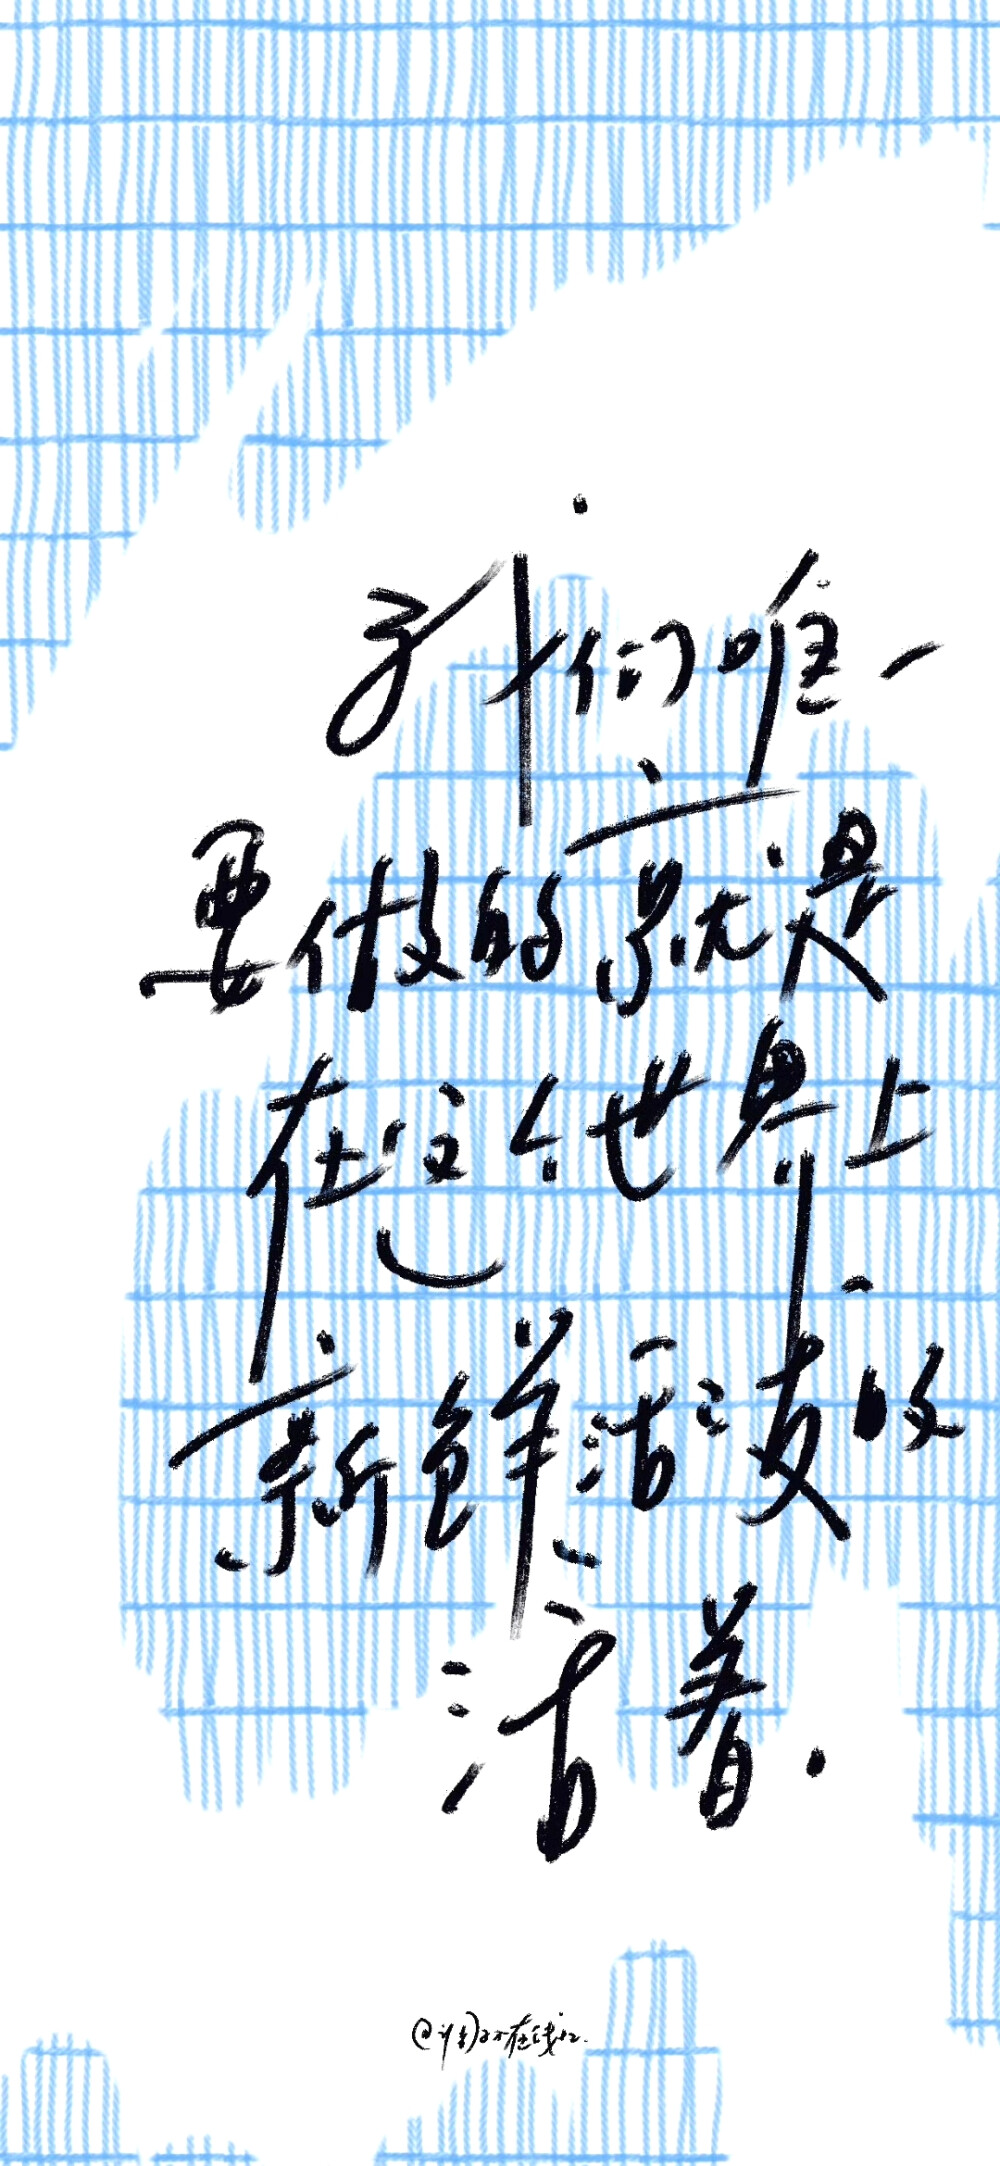 我们唯一
要做的就是
在这个世界上
新鲜活泼的
活着.